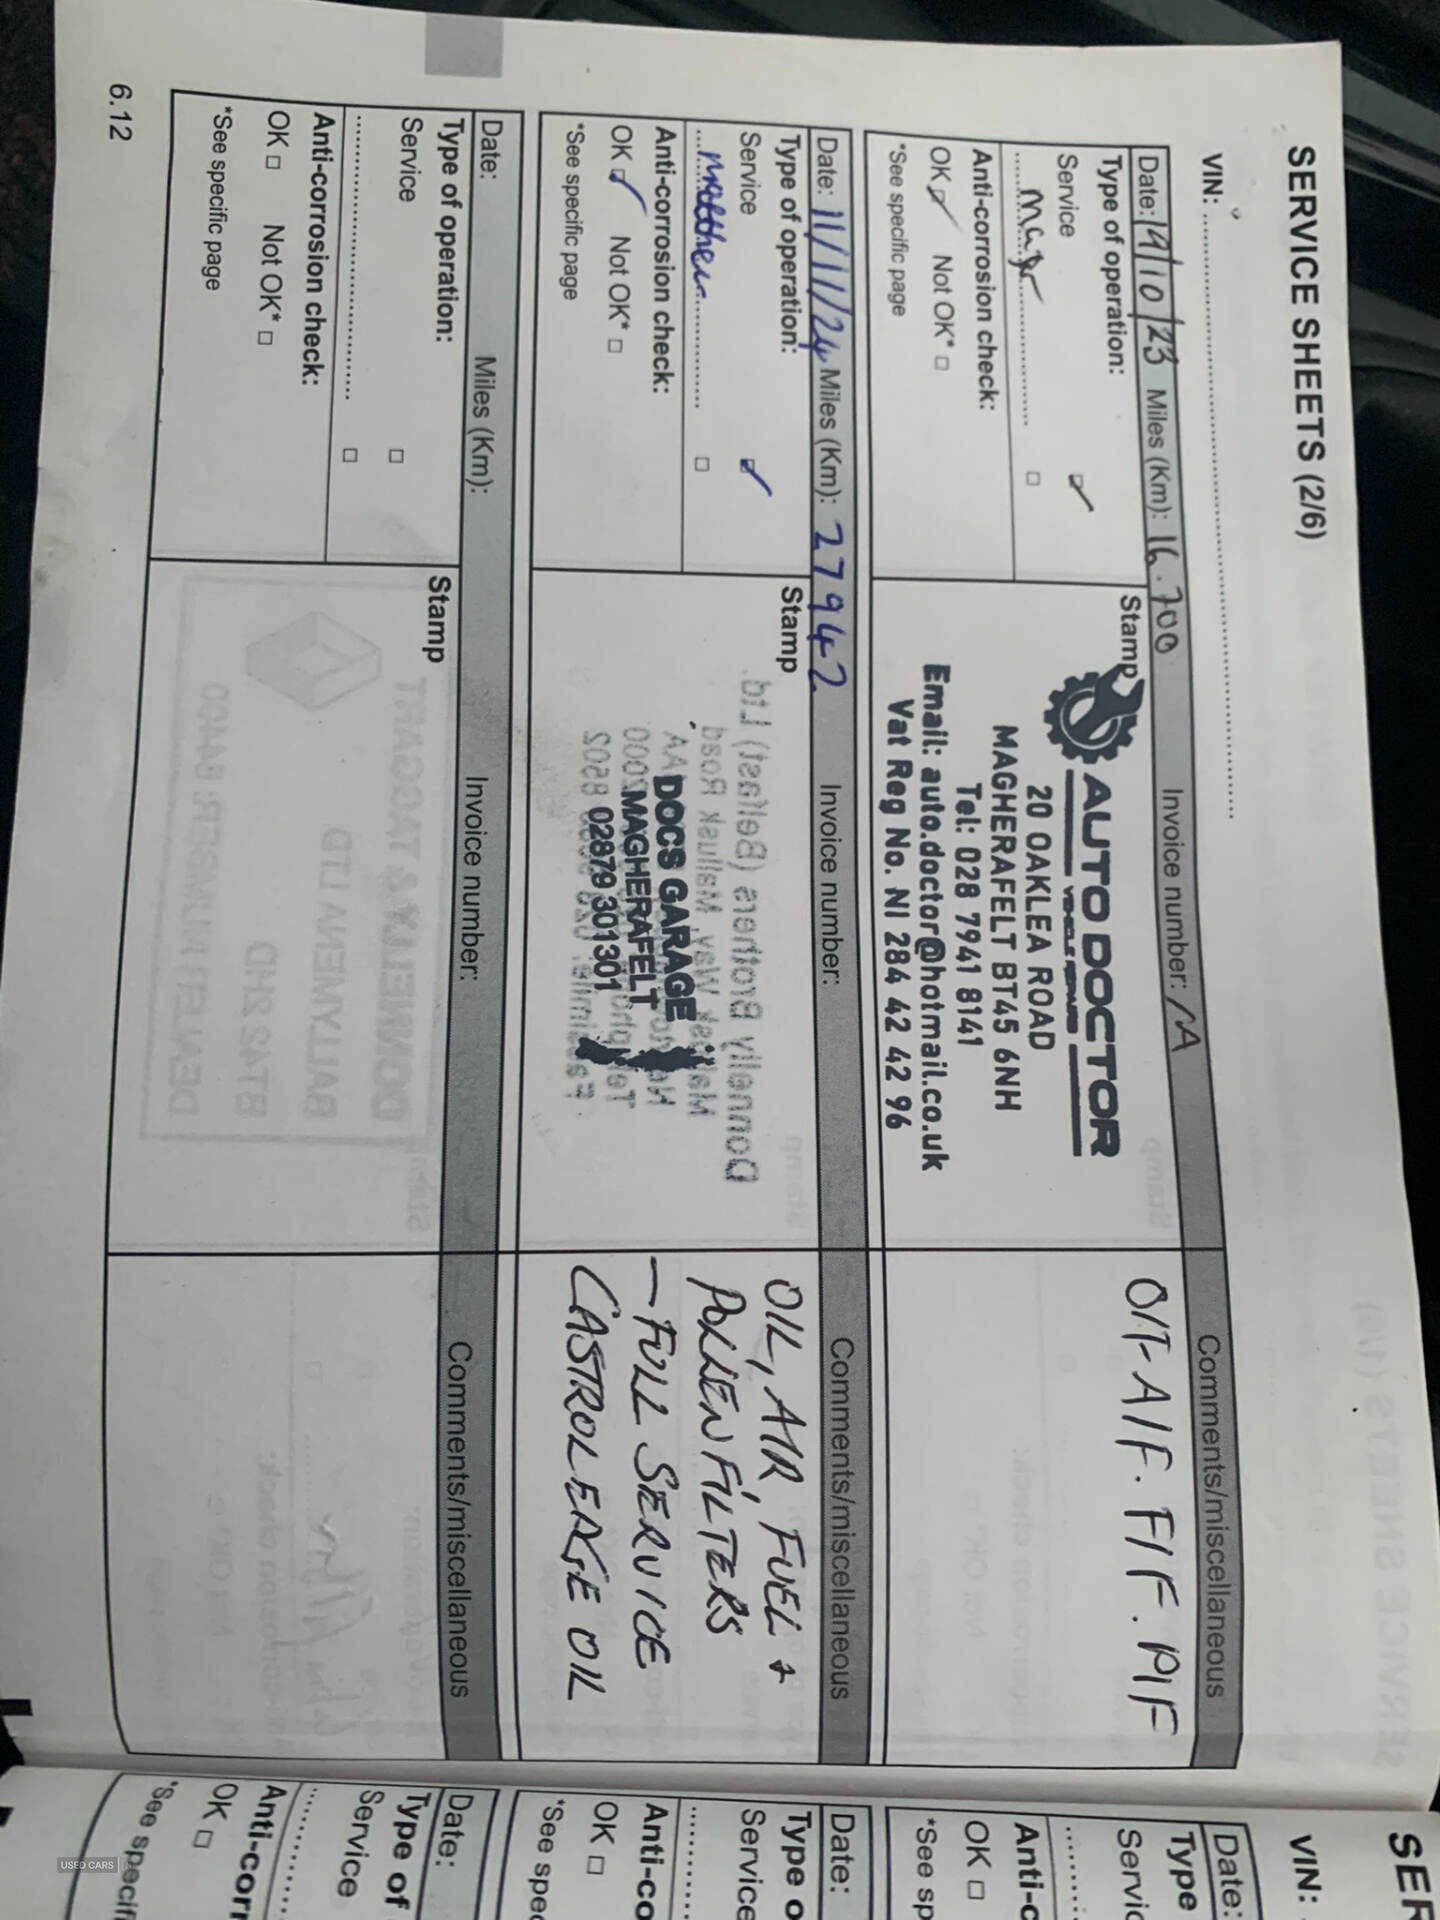 SERVICE SHEETS (2/6)
VIN:
Date: 19/10/23 Miles (Km): 16.700 Invoice number: Comments/miscellaneous
Type of operation:
Service
Major
Anti-corrosion check:
OK Not OK*
*See specific page
Stamp
AUTO DOCTOR
VEHICLE REPAIRS
20 OAKLEA ROAD
MAGHERAFELT BT45 6NH
Tel: 028 7941 8141
Email: auto.doctor@hotmail.co.uk
Vat Reg No. NI 284 42 42 96
A/F. F/F. P/F
Date: 11/11/24 Miles (Km): 27942 Invoice number: Comments/miscellaneous
Type of operation:
Service
Anti-corrosion check:
OK Not OK*
*See specific page
Stamp
DOCS GARAGE
MAGHERAFELT
02879 301301
OIL, AIR, FUEL +
POLLEN FILTERS
- FULL SERVICE
CASTROL EDGE OIL
Date: Miles (Km): Invoice number: Comments/miscellaneous
Type of operation:
Service
Anti-corrosion check:
OK Not OK*
*See specific page
Stamp
6.12
SER
VIN:
Date:
Type
Servic
Anti-c
OK
*See sp
Date:
Type o
Service
Anti-co
OK
*See spec
Date:
Type of
Service
Anti-corr
OK
*See specifi
USED CARS